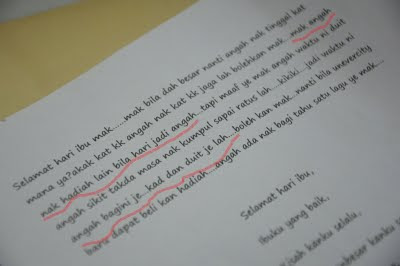 Selamat hari ibu mak.....mak bila dah besar nanti angah nak tinggal kat
mana ya?akak kat kk angah nak kat kk jaga lah bolehkan mak...mak angah
nak hadiah lain bila hari jadi angah...tapi maaf ye mak angah waktu ni duit
angah sikit takda masa nak kumpul sapai ratus lah...kikiki....jadi waktu ni
angah bagini je..kad dan duit je lah...boleh kan mak..nanti bila uneversity
baru dapat beli kan hadiah...angah ada nak bagi tahu satu lagu ye mak...
Selamat hari ibu,
Ibuku yang baik,
kanku selalu,